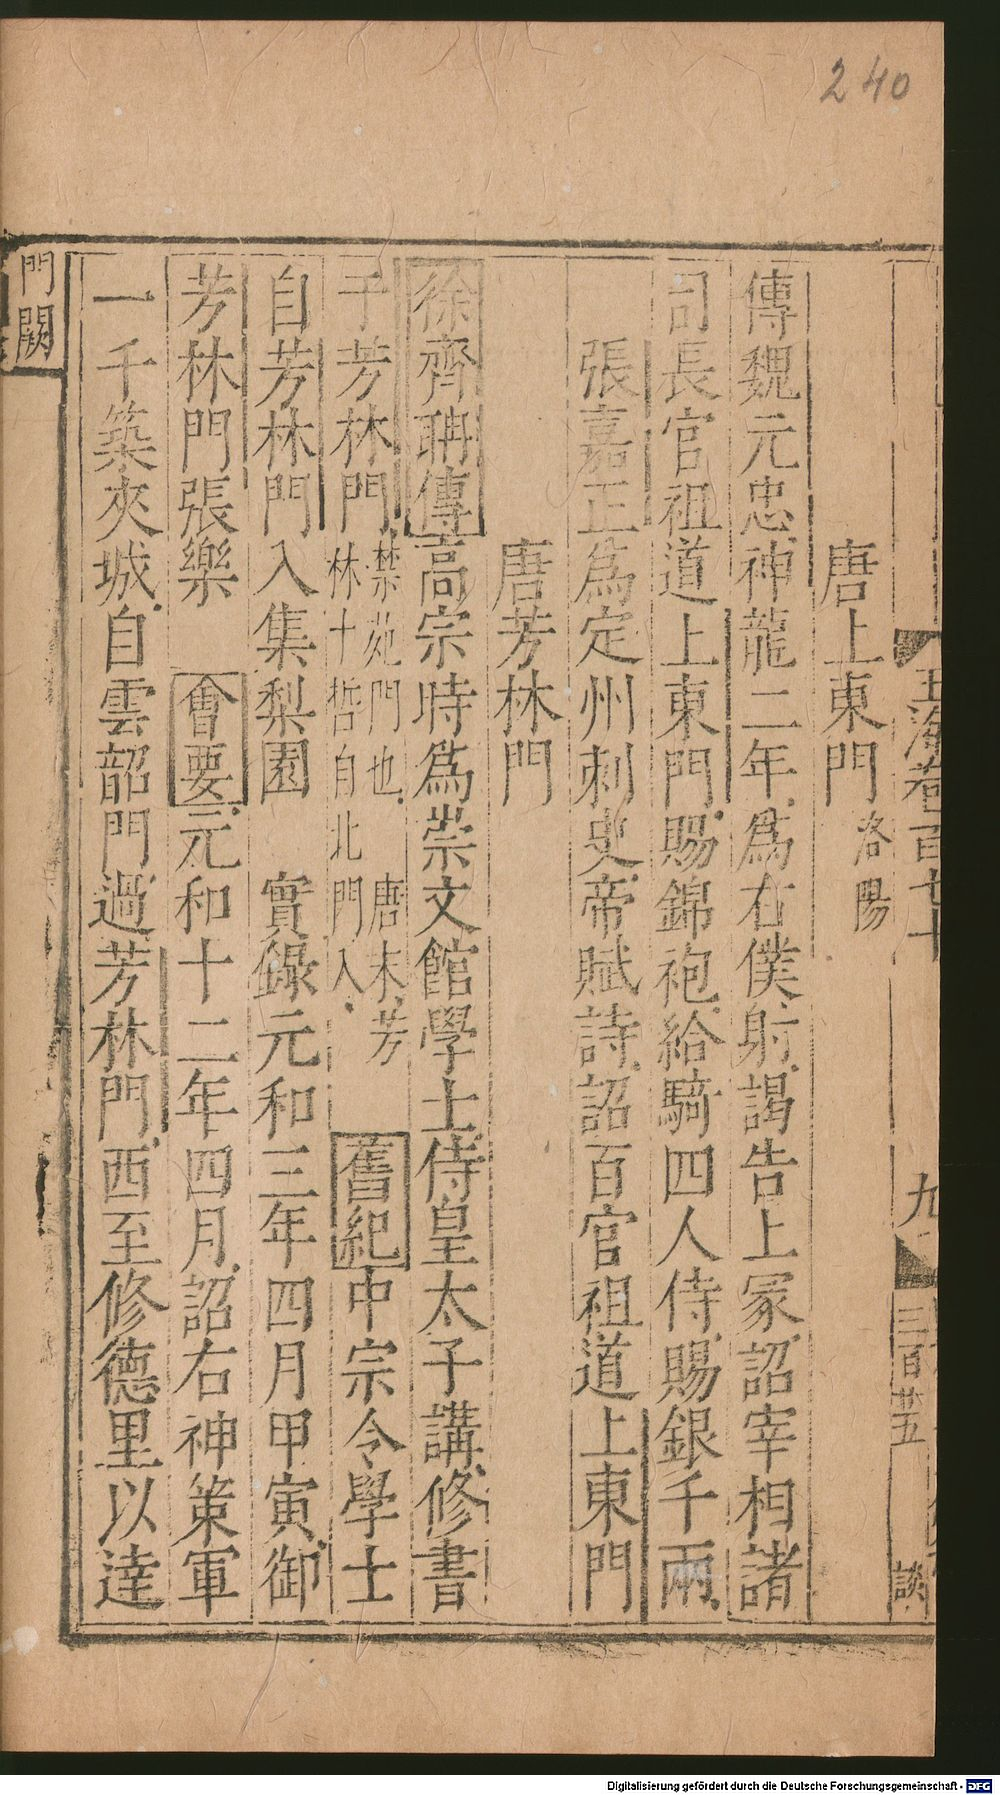 240
玉海卷百七十
九
三百廿五
談
唐上東門洛陽
傳魏元忠神龍二年為右僕射謁告上冢詔宰相諸
司長官祖道上東門賜錦袍給騎四人侍賜銀千兩
張嘉正為定州刺史帝賦詩詔百官祖道上東門
唐芳林門
徐齊聃傳高宗時為崇文館學士侍皇太子講修書
于芳林門禁苑門也唐末芳林十哲自北門入舊紀中宗令學士
自芳林門入集梨園 實錄元和三年四月甲寅御
芳林門張樂 會要元和十二年四月詔右神策軍
一千築夾城自雲韶門過芳林門西至修德里以達
門闕
Digitalisierung gefördert durch die Deutsche Forschungsgemeinschaft - DFG